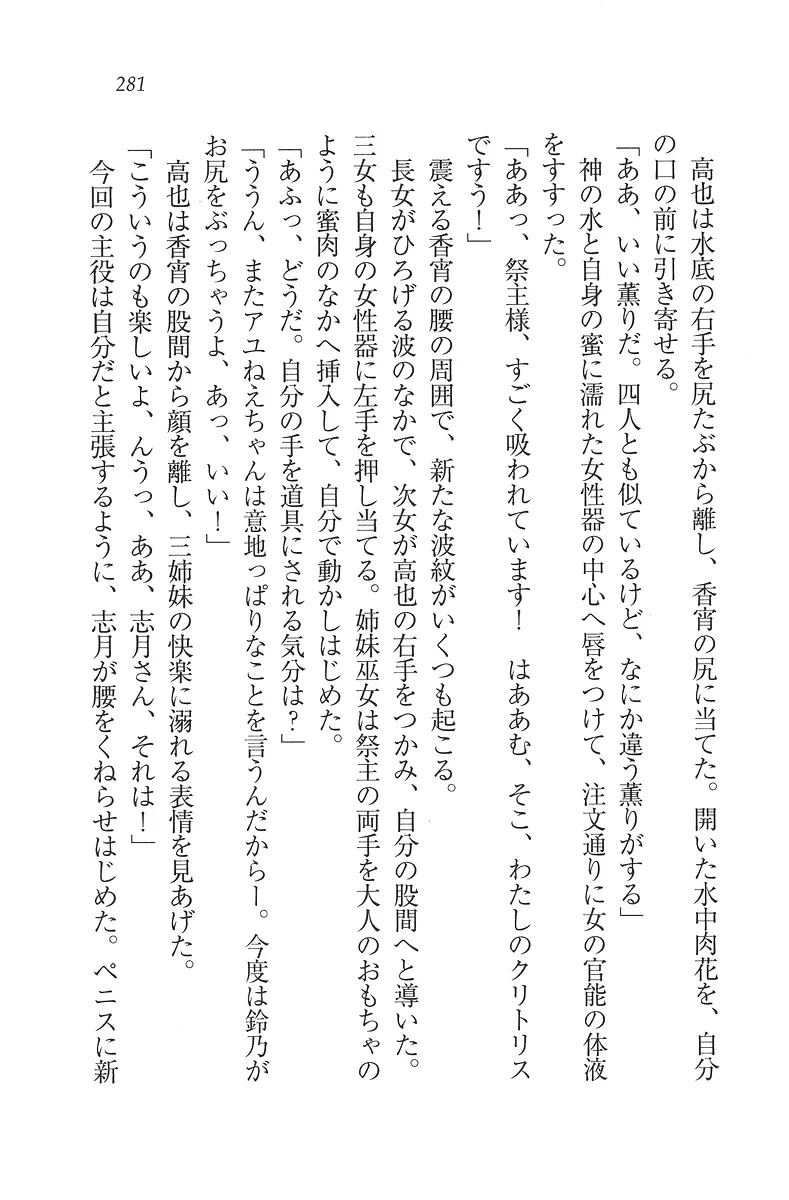 281
高也は水底の右手を尻たぶから離し、香宵の尻に当てた。開いた水中肉花を、自分
の口の前に引き寄せる。
「ああ、いい薫りだ。四人とも似ているけど、なにか違う薫りがする」
神の水と自身の蜜に濡れた女性器の中心へ唇をつけて、注文通りに女の官能の体液
をすすった。
「ああっ、祭主様、すごく吸われています！　はああむ、そこ、わたしのクリトリス
ですう！」
震える香宵の腰の周囲で、新たな波紋がいくつも起こる。
長女がひろげる波のなかで、次女が高也の右手をつかみ、自分の股間へと導いた。
三女も自身の女性器に左手を押し当てる。姉妹巫女は祭主の両手を大人のおもちゃの
ように蜜肉のなかへ挿入して、自分で動かしはじめた。
「あふっ、どうだ。自分の手を道具にされる気分は？」
「ううん、またアユねえちゃんは意地っぱりなことを言うんだからー。今度は鈴乃が
お尻をぶっちゃうよ、あっ、いい！」
高也は香宵の股間から顔を離し、三姉妹の快楽に溺れる表情を見あげた。
「こういうのも楽しいよ、んうっ、ああ、志月さん、それは！」
今回の主役は自分だと主張するように、志月が腰をくねらせはじめた。ペニスに新